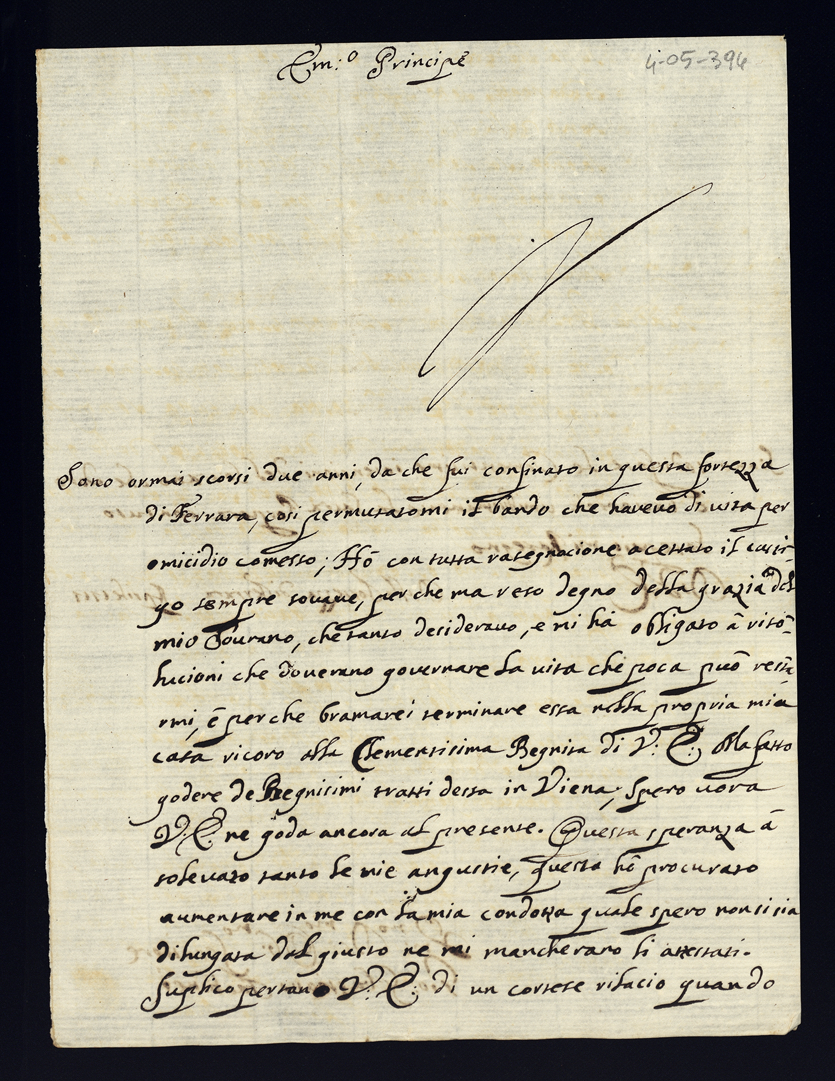 Em:o Principe
4-05-394
Sono ormai scorsi due anni, da che fui confinato in questa fortezza
di Ferrara, così permutatomi il bando che havevo di vita per
omicidio comesso; Hò con tutta rasegnacione acettato il casti-
go sempre souaue, perche ma reso degno della grazia del
mio Sourano, che tanto desiderauo, e mi hà obligato à risò-
lucioni che doverano governare la vita che poca può restà-
rmi, è perche bramarei terminare essa nella propria mia
casa ricoro alla Clementisima Begnita di V: E: Ma fatto
godere de Begnisimi tratti dessa in Viena, spero vora
V: E: ne goda ancora al presente. Questa speranza à
solevato tanto le mie angustie, questa hò procurato
aumentare in me con la mia condotta quale spero non si sia
dilungata dal giusto ne mi mancherano li attestati.
Suplico pertano V: E: di un cortese rilacio quando